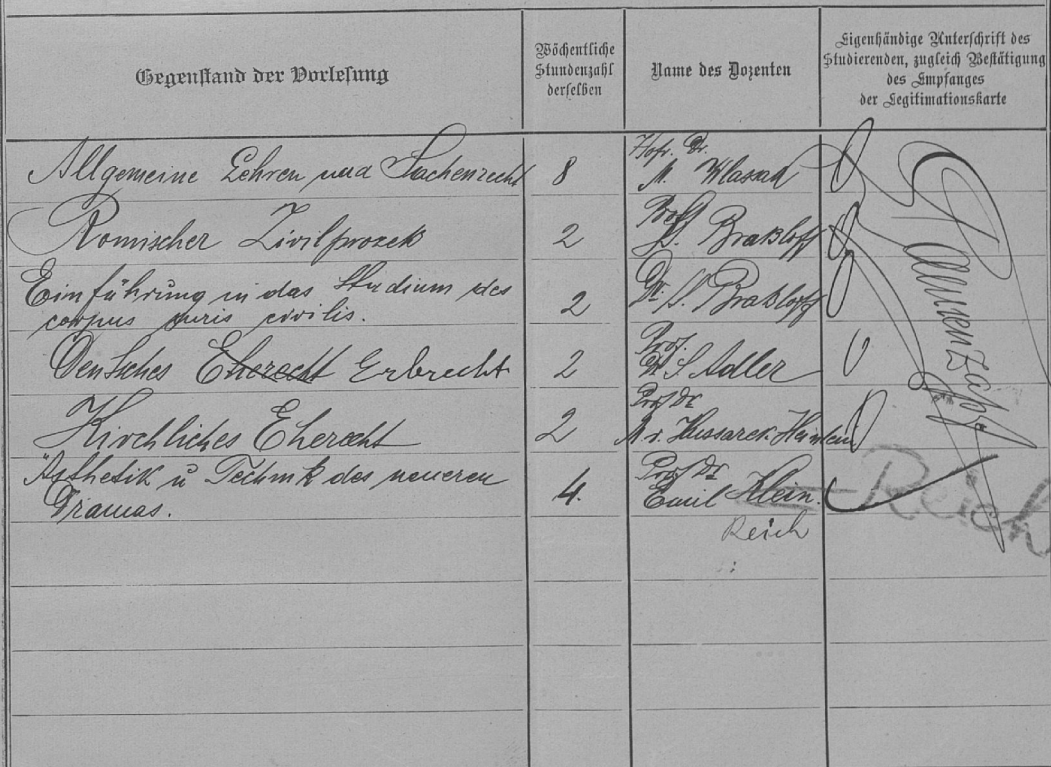 Gegenstand der Vorlesung
Wöchentliche
Stundenzahl
derselben
Name des Dozenten
Eigenhändige Unterschrift des
Studierenden, zugleich Bestätigung
des Empfanges
der Legitimationskarte
Allgemeine Lehren und Sachenrecht 8 Hofr. Dr.
M. Wlassak
Römischer Zivilprozeß 2 Prof.
S. Braßloff
Einführung in das Studium des
corpus juris civilis. 2 Dr. S. Braßloff
Eherecht Erbrecht 2 Prof.
Dr. S Adler
Kirchliches Eherecht 2 Prof Dr
M v. Hussarek Heinlein
Ästhetik u Technik des neueren
Dramas. 4. Prof Dr
Emil Klein.
Reich
Reich